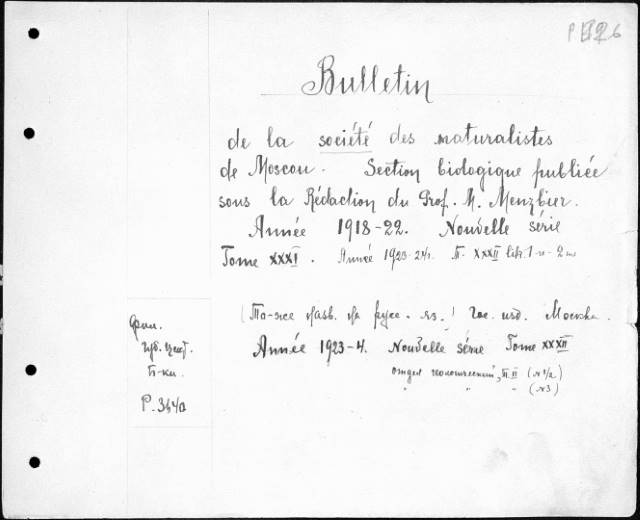 Bulletin
de la société des naturalistes
de Moscou. Section biologique publiée
sous la Rédaction du Prof. M. Menzbier.
Année 1918-22. Nouvelle série
Tome XXXI. Année 1923-24г. Т. XXXII
(То-же назв. на русс. яз.) Гос. изд. Москва.
Année 1923-4. Nouvelle série Tome XXXII
отдел геологический, Т. II (№1/2)
" " " (№3)
Б-ки.
P. 364a